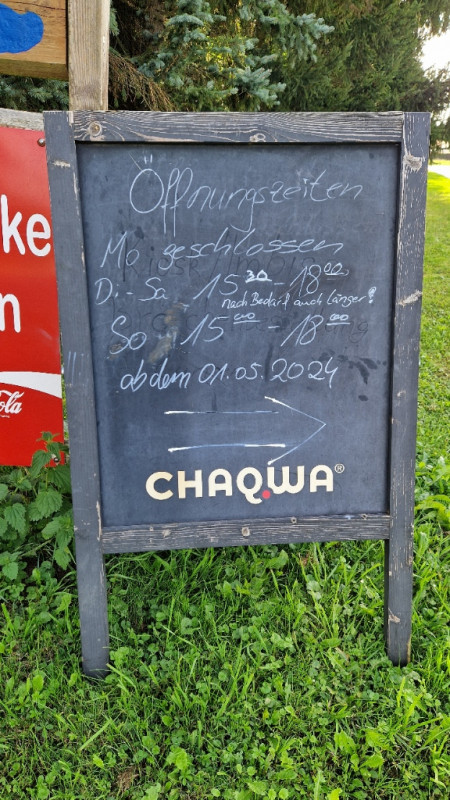 Öffnungszeiten
Mo geschlossen
Di - Sa 15³⁰ - 18⁰⁰
nach Bedarf auch Länger!
So 15⁰⁰ - 18⁰⁰
ab dem 01.05.2024
CHAQWA®
ke
n
Cola